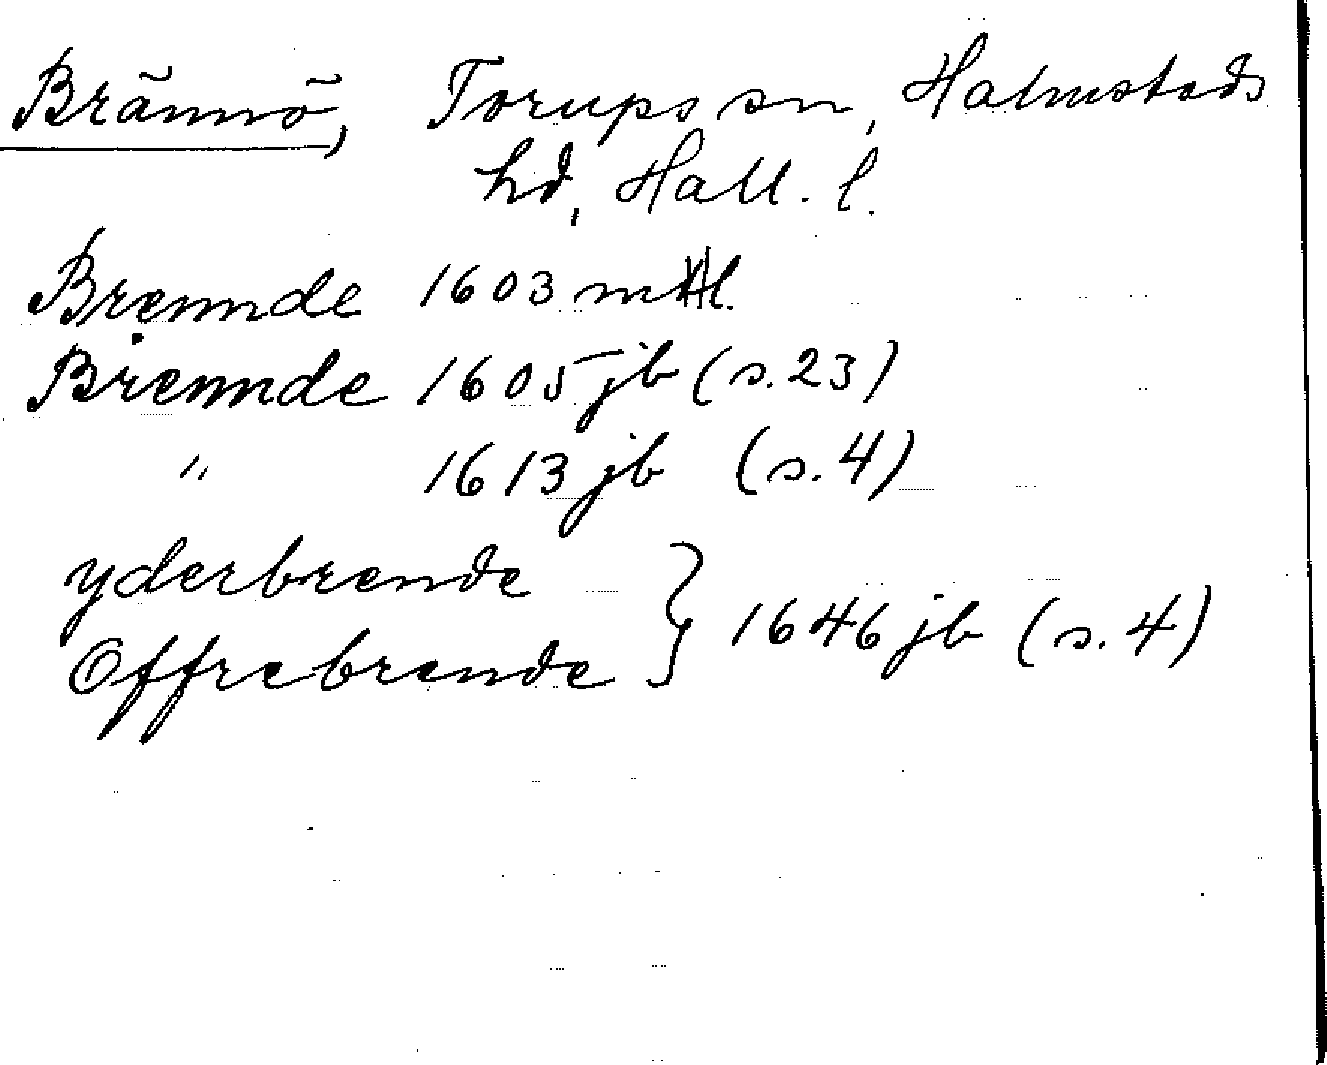 Brännö, Torups sn, Halmstads
hd, Hall. l.
Brennde 1603 mtl.
Brennde 1605 jb (s. 23)
" 1613 jb (s. 4)
yderbrende
Offrebrende } 1646 jb (s. 4)